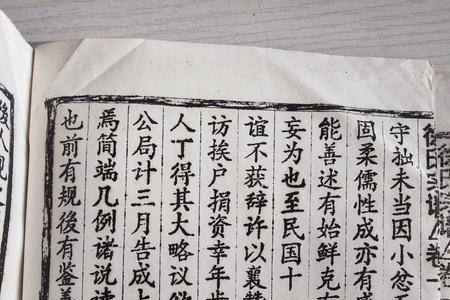 徐氏宗谱卷一
守拙未当因小忿
固柔儒性成亦有
能善述有始鲜克有
妄为也至民国十
谊不获辞许以襄
访挨户捐资幸年
人丁得其大略议欲
公局计三月告成
焉简端几例诸说
也前有规後有鉴
後人